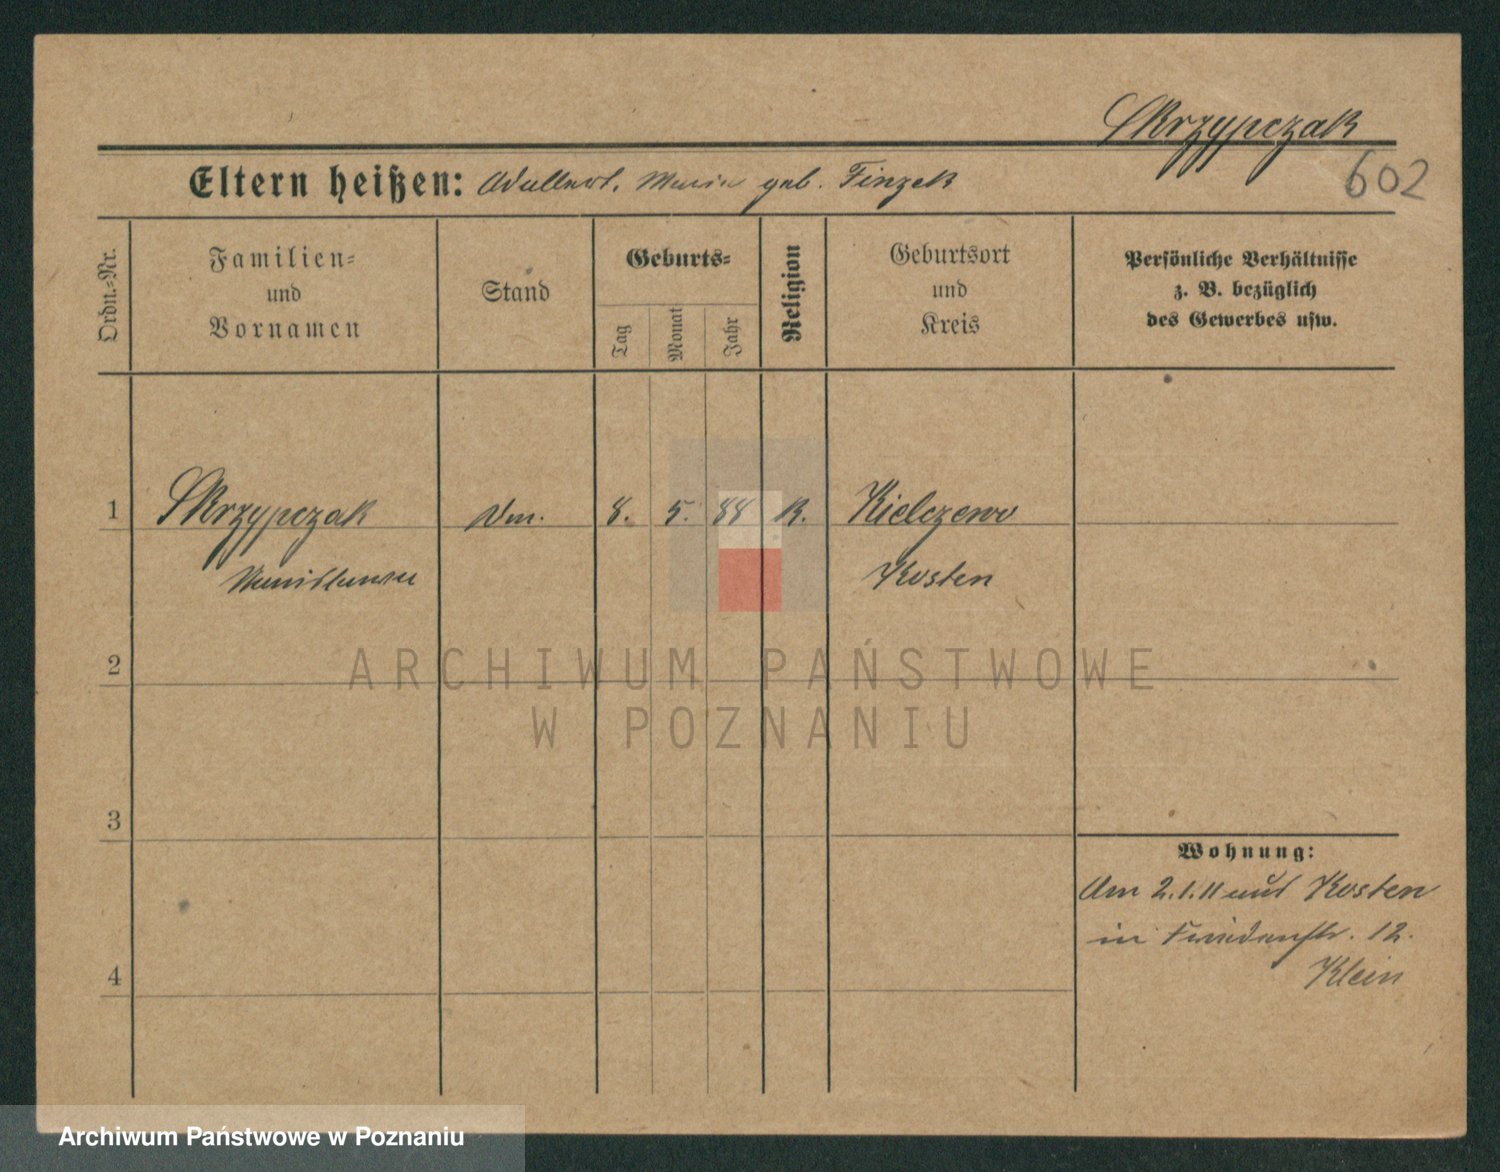 Skrzypczak
602
Eltern heißen: Adalbert. Maria geb. Finzek
Ordn.-Nr.
Familien-
und
Vornamen
Stand
Geburts-
Tag
Monat
Jahr
Religion
Geburtsort
und
Kreis
Persönliche Verhältnisse
z. B. bezüglich
des Gewerbes usw.
1 Skrzypczak 8. 5. 88 K. Kielczewo
Kosten
2
3
4
Wohnung:
Am 2.1.11 aus Kosten
in 12.
Klein
ARCHIWUM PAŃSTWOWE
W POZNANIU
Archiwum Państwowe w Poznaniu